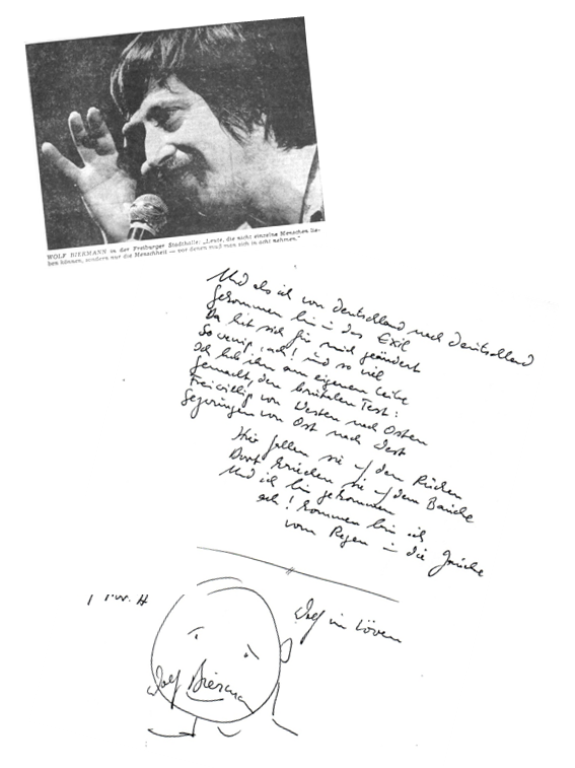 WOLF BIERMANN in der Freiburger Stadthalle: „Leute, die nicht einzelne Menschen lie-
ben können, sondern nur die Menschheit — vor denen muß man sich in acht nehmen."
Und als ich von Deutschland nach Deutschland
Gekommen bin in das Exil
Da hat sich für mich geändert
So wenig, ach! und so viel
Ich hab ihn am eigenen Leibe
Gemacht, den brutalen Test:
Freiwillig von Westen nach Osten
Gezwungen von Ost nach West
Hier fallen sie auf den Rücken
Dort kriechen sie auf dem Bauche
Und ich bin gekommen
ach! kommen bin ich
vom Regen in die Jauche
Wolf in Löven
Wolf Biermann